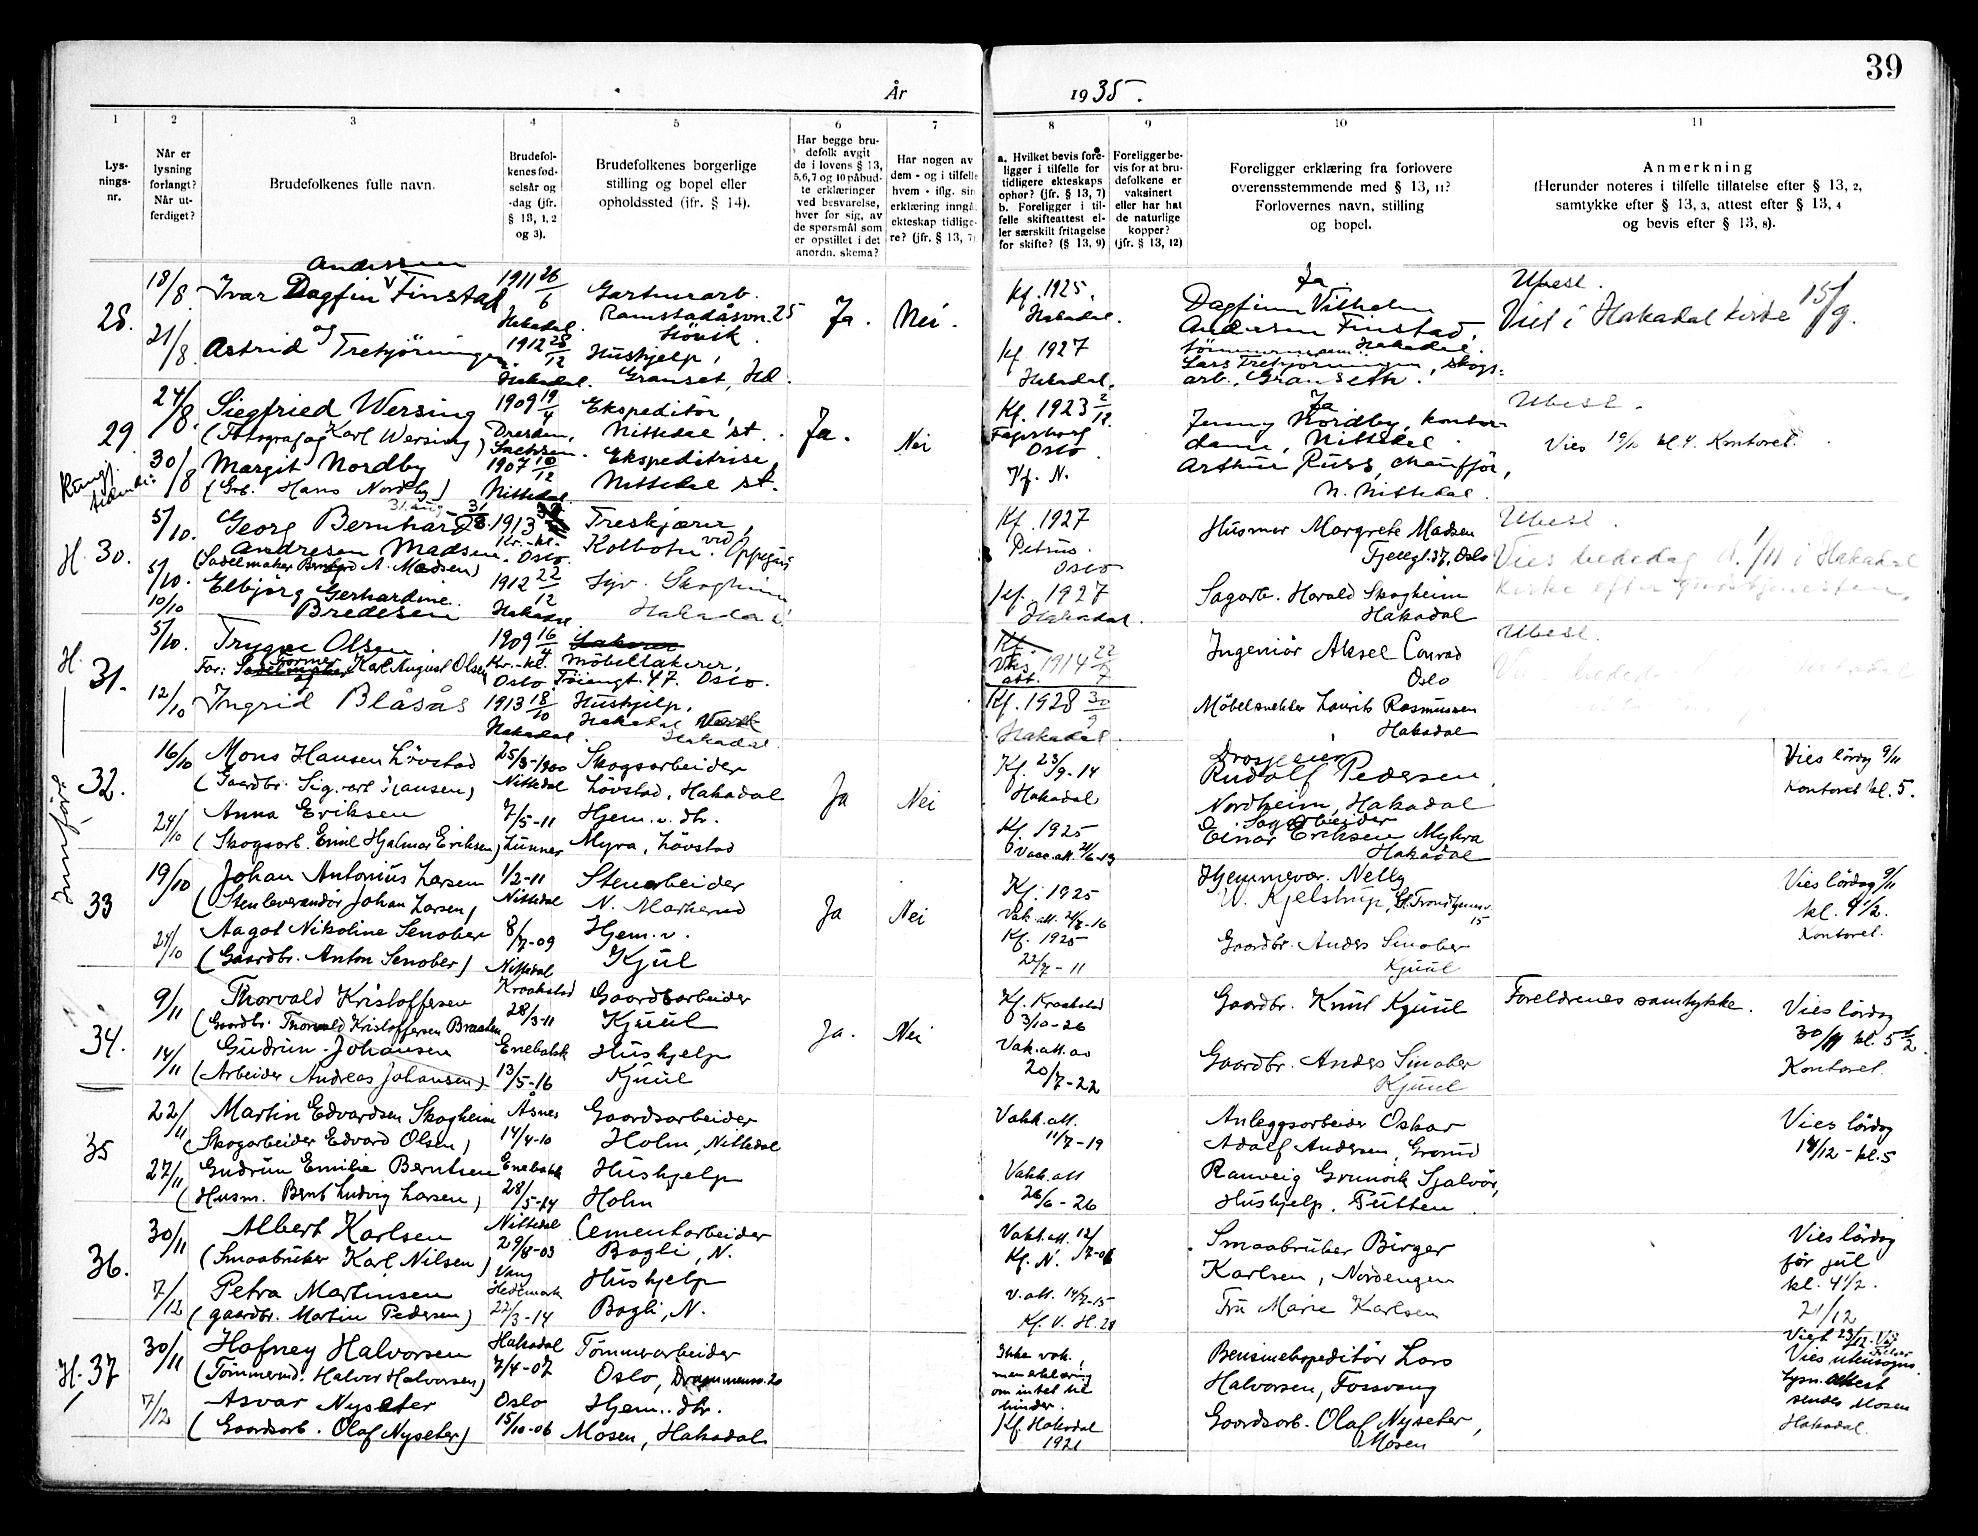 39
År 1935.
1 2 3 4 5 6 7 8 9 10 11
Lys-
nings-
nr.
Når er
lysning
forlangt?
Når ut-
ferdiget?
Brudefolkenes fulle navn.
Brudefol-
kenes fød-
selsår og
-dag (jfr.
§ 13, 1, 2
og 3).
Brudefolkenes borgerlige
stilling og bopel eller
opholdssted (jfr. § 14).
Har begge bru-
defolk avgit
de i lovens § 13,
5,6,7 og 10 påbud-
te erklæringer
ved besvarelse,
hver for sig, av
de spørsmål som
er opstillet i det
anordn. skema?
Har nogen av
dem - og i tilfelle
hvem - iflg. sin
erklæring inngå
ekteskap tidlige-
re? (jfr. § 13, 7)
a. Hvilket bevis fore-
ligger i tilfelle for
tidligere ekteskaps
ophør? (jfr. § 13, 7)
b. Foreligger i til-
felle skifteattest el-
ler særskilt fritagelse
for skifte? (§ 13, 9)
Foreligger be-
vis for at bru-
defolkene er
vaksinert
eller har hat
de naturlige
kopper?
(jfr. § 13, 12)
Foreligger erklæring fra forlovere
overensstemmende med § 13, 11?
Forlovernes navn, stilling
og bopel.
Anmerkning
(Herunder noteres i tilfelle tillatelse efter § 13, 2,
samtykke efter § 13, 3, attest efter § 13, 4
og bevis efter § 13, 8).
28.
18/8.
21/8.
Andersen
Ivar Dagfin Finstad
og
Astrid Tretjörningen
1911 26/6
Hakadal.
1912 28/12
Hakadal.
Gartnerarb.
Ramstadåsvn. 25
Hövik.
Hushjelp,
Granset, Hd.
Ja.
Nei.
Kf. 1925.
Hakadal.
Kf. 1927
Hakadal.
Ja.
Dagfinn Vilhelm
Andersen Finstad,
Hakadal.
Lars Tretjörningen, skogs-
arb., Granseth.
Ubesl.
Viet i Hakadal kirke 15/9.
29.
24/8.
30/8
Siegfried Wersing
(Fotograf Karl Wersing)
Margit Nordby
(Grb. Hans Nordby)
1909 19/4
Dresden,
Sachsen.
1907 10/12
Nittedal.
Ekspeditör,
Nittedal st.
Ekspeditrise,
Nittedal st.
Ja.
Nei
Kf. 1923 2/12.
Fagerborg
Oslo.
Kf. N.
Ja
Jenny Nordby, kontor-
dame, Nittedal.
Arthur Russ, chauffør,
N. Nittedal.
Ubesl.
Vies 19/10 kl. 4. Kontoret.
H. 30.
5/10.
5/10.
10/10
31. aug. 31/8
Georg Bernhard
Andresen Madsen
(Sadelmaker Bernhard A. Madsen)
Elbjörg Gerhardine
Bredesen
1913
Kr.-kl.
Oslo.
1912 22/12
Hakadal
Treskjærer,
Kolbotn. ved Oppegård
Syv. Skogheim
Hakadal
Kf. 1927
Petrus.
Oslo
Kf. 1927
Hakadal.
Husmor Margrete Madsen
Fjellgt. 37, Oslo
Sagarb. Harald Skogheim
Hakadal
Ubesl.
Vies bededag d. 1/11 i Hakadal
kirke efter gudstjenesten.
H. 31.
5/10.
12/10
Trygve Olsen
Far: Sadelmaker Former Karl August Olsen
Ingrid Blåsås
1909 16/4
Kr.-kl.
Oslo
1913 18/10
Hakadal
Møbeltakerer,
Töiengt. 47. Oslo.
Hushjelp,
Hakadal Verk
Hakadal
Kf.
Vaks. 1914 22/7
att.
Kf. 1928 30/9
Hakadal.
Ingeniör Aksel Conrad
Oslo
Møbelsnekker Laurits Rasmussen
Hakadal
Ubesl.
Innføre
32.
16/10
24/10
Mons Hansen Lövstad
(Gaardbr. Sig. art Hansen)
Anna Eriksen
(Skogsarb. Emil Hjalmar Eriksen)
25/3-1900
Nittedal
7/5-11
Lunner
Skogsarbeider
Lövstad, Hakadal
Hjem.v. dtr.
Myra, Lövstad
Ja
Nei
Kf. 23/9-14
Hakadal
Kf. 1925
Vacc.att. 21/6-13
Drosjeeier
Rudolf Pedersen
Nordheim, Hakadal
Sagarbeider
Einar Eriksen Myhra
Hakadal
Vies lördag 9/11
Kontoret kl. 5.
33
19/10
24/10
Johan Antonius Larsen
(Stenleverandör Johan Larsen)
Aagot Nikoline Senober
(Gaardbr. Anton Senober)
1/2-11
Nittedal
8/7-09
Nittedal
Stenarbeider
N. Markerud
Hjem.v.
Kjul
Ja
Nei
Kf. 1925
Vak.att. 21/8-16
Kf. 1925
22/7-11
Hjemmevær. Nelly
W. Kjelstrup, Gl. Trondhjemsv.
15
Gaardbr. Anders Sinober
Kjuul
Vies lördag 9/11
kl. 4 1/2.
Kontoret.
34.
9/11
14/11
Thorvald Kristoffersen
(Gaardbr. Thorvald Kristoffersen Braaten
Gudrun Johansen
(Arbeider Andreas Johansen)
Kraakstad
28/3-11
Enebakk
13/5-16
Gaardsarbeider
Kjuul
Hushjelp
Kjuul
Ja.
Nei
Kf. Kraakstad
3/10-26
Vak.att. av
20/7-22
Gaardbr. Knut Kjuul
Gaardbr. Anders Sinober
Kjuul
Foreldrenes samtykke.
Vies lördag
30/11 kl. 5 1/2
Kontoret.
35
22/11
27/11
Martin Edvardsen Skogheim
(Skogarbeider Edvard Olsen)
Gudrun Emilie Berntsen
(Husm. Bernt Ludvig Larsen)
Åsnes
14/4-10
Enebakk
28/5-14
Gaardsarbeider
Holm, Nittedal
Hushjelp
Holm
Vakk.att.
11/7-19
Vakk.att
26/6-26
Anleggsarbeider Oskar
Adolf Andersen, Grorud
Ranveig Grunvik Sjalvör,
Hushjelp. Tutten.
Vies lördag
14/12 - kl. 5
36.
30/11
7/12
Albert Karlsen
(Smaabruker Karl Nilsen)
Petra Martinsen
(gaardbr. Martin Pedersen)
Nittedal
29/8-03
Vang
Hedemark
22/3-14
Cementarbeider
Bagli, N.
Hushjelp
Bagli, N.
Vakk.att. 12/7-06
Kf. N.
v.att. 14/7-15
Kf. V. H. 28
Smaabruker Birger
Karlsen, Nordengen
Fru Marie Karlsen
Vies lördag
för jul
kl. 4 1/2.
21/12
H. 37
30/11
7/12
Hafney Halvorsen
(Tømmerm. Halvor Halvorsen)
Asvar Nyseter
(Gaardsarb. Olaf Nyseter)
Hakadal
7/4-07
Oslo
15/10-06
Tömmerarbeider
Oslo, Drammensv. 20
Hjem. dtr.
Mosen, Hakadal
Ikke vak.,
men erklæring
om intet til
hinder.
Kf. Hakadal
1921
Bensinekspeditör Lars
Halvorsen, Fossvang
Gaardsarb. Olaf Nyseter,
Mosen
Viet 23/12.
Vies utensogns
lysn. attest
sendes Mosen
Hakadal.